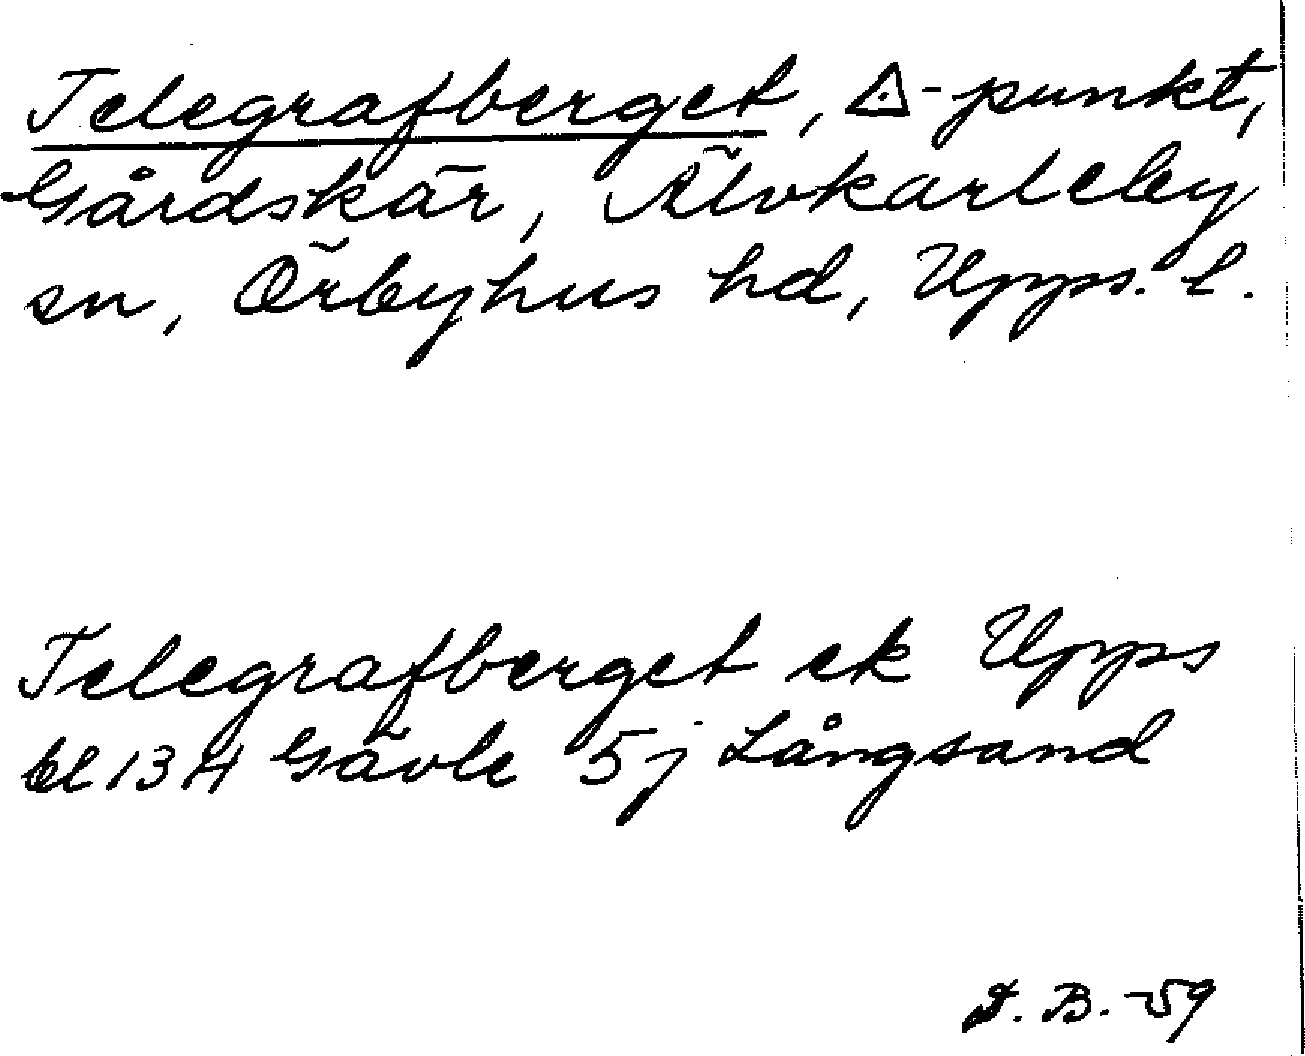 Telegrafberget, △-punkt,
Gårdskär, Älvkarleby
sn, Örbyhus hd, Upps. l.
Telegrafberget ek Upps
bl 13 H Gävle 5 j Långsand
D. B. -59